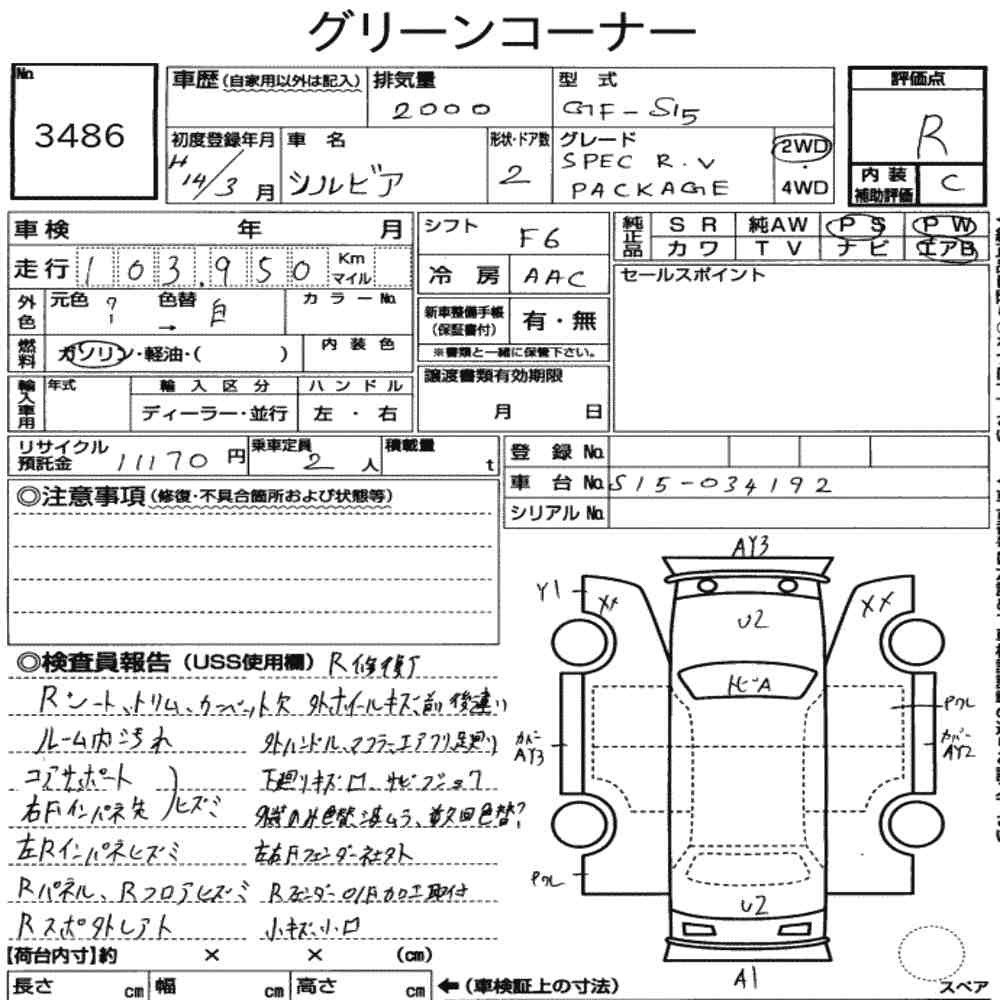 グリーンコーナー
No.
3486
車歴(自家用以外は記入)
排気量
2000
型 式
GF-S15
評価点
R
初度登録年月
H14/3月
車 名
シルビア
形状・ドア数
2
グレード
SPEC R.V
PACKAGE
2WD
・
4WD
内装
補助評価
C
車検 年 月
シフト
F6
純正品
SR 純AW PS PW
カワ TV ナビ エアB
走行
103.950
Km
マイル
冷房
AAC
セールスポイント
外色
元色 ?
色替
→
カラーNo.
新車整備手帳
(保証書付)
有・無
※書類と一緒に保管下さい。
燃料
ガソリン・軽油・( )
内装色
輸入車用
年式
輸入区分
ディーラー・並行
ハンドル
左・右
譲渡書類有効期限
月 日
リサイクル
預託金
11170円
乗車定員
2人
積載量
t
登録No.
車台No.
S15-034192
シリアルNo.
◎注意事項(修復・不具合箇所および状態等)
◎検査員報告(USS使用欄)R修復了
Rシート、トリム、カーペット欠 外ホイールキズ、前後違い
ルーム内汚れ 外ハンドル、マフラー、エアクリ、足廻り
コアサポート 下廻りキズ、凹、サビ
右Fインパネ先 ヒズミ
左Rインパネヒズミ 左右Fフェンダー
Rパネル、Rフロアヒズミ Rフェンダー 加工取付
小キズ、小凹
【荷台内寸】約 × × (cm)
長さ cm 幅 cm 高さ cm
←(車検証上の寸法)
AY3
Y1
XX
XX
U2
トビA
カバー
AY3
Pクレ
カバー
AY2
Pクレ
U2
A1
スペア